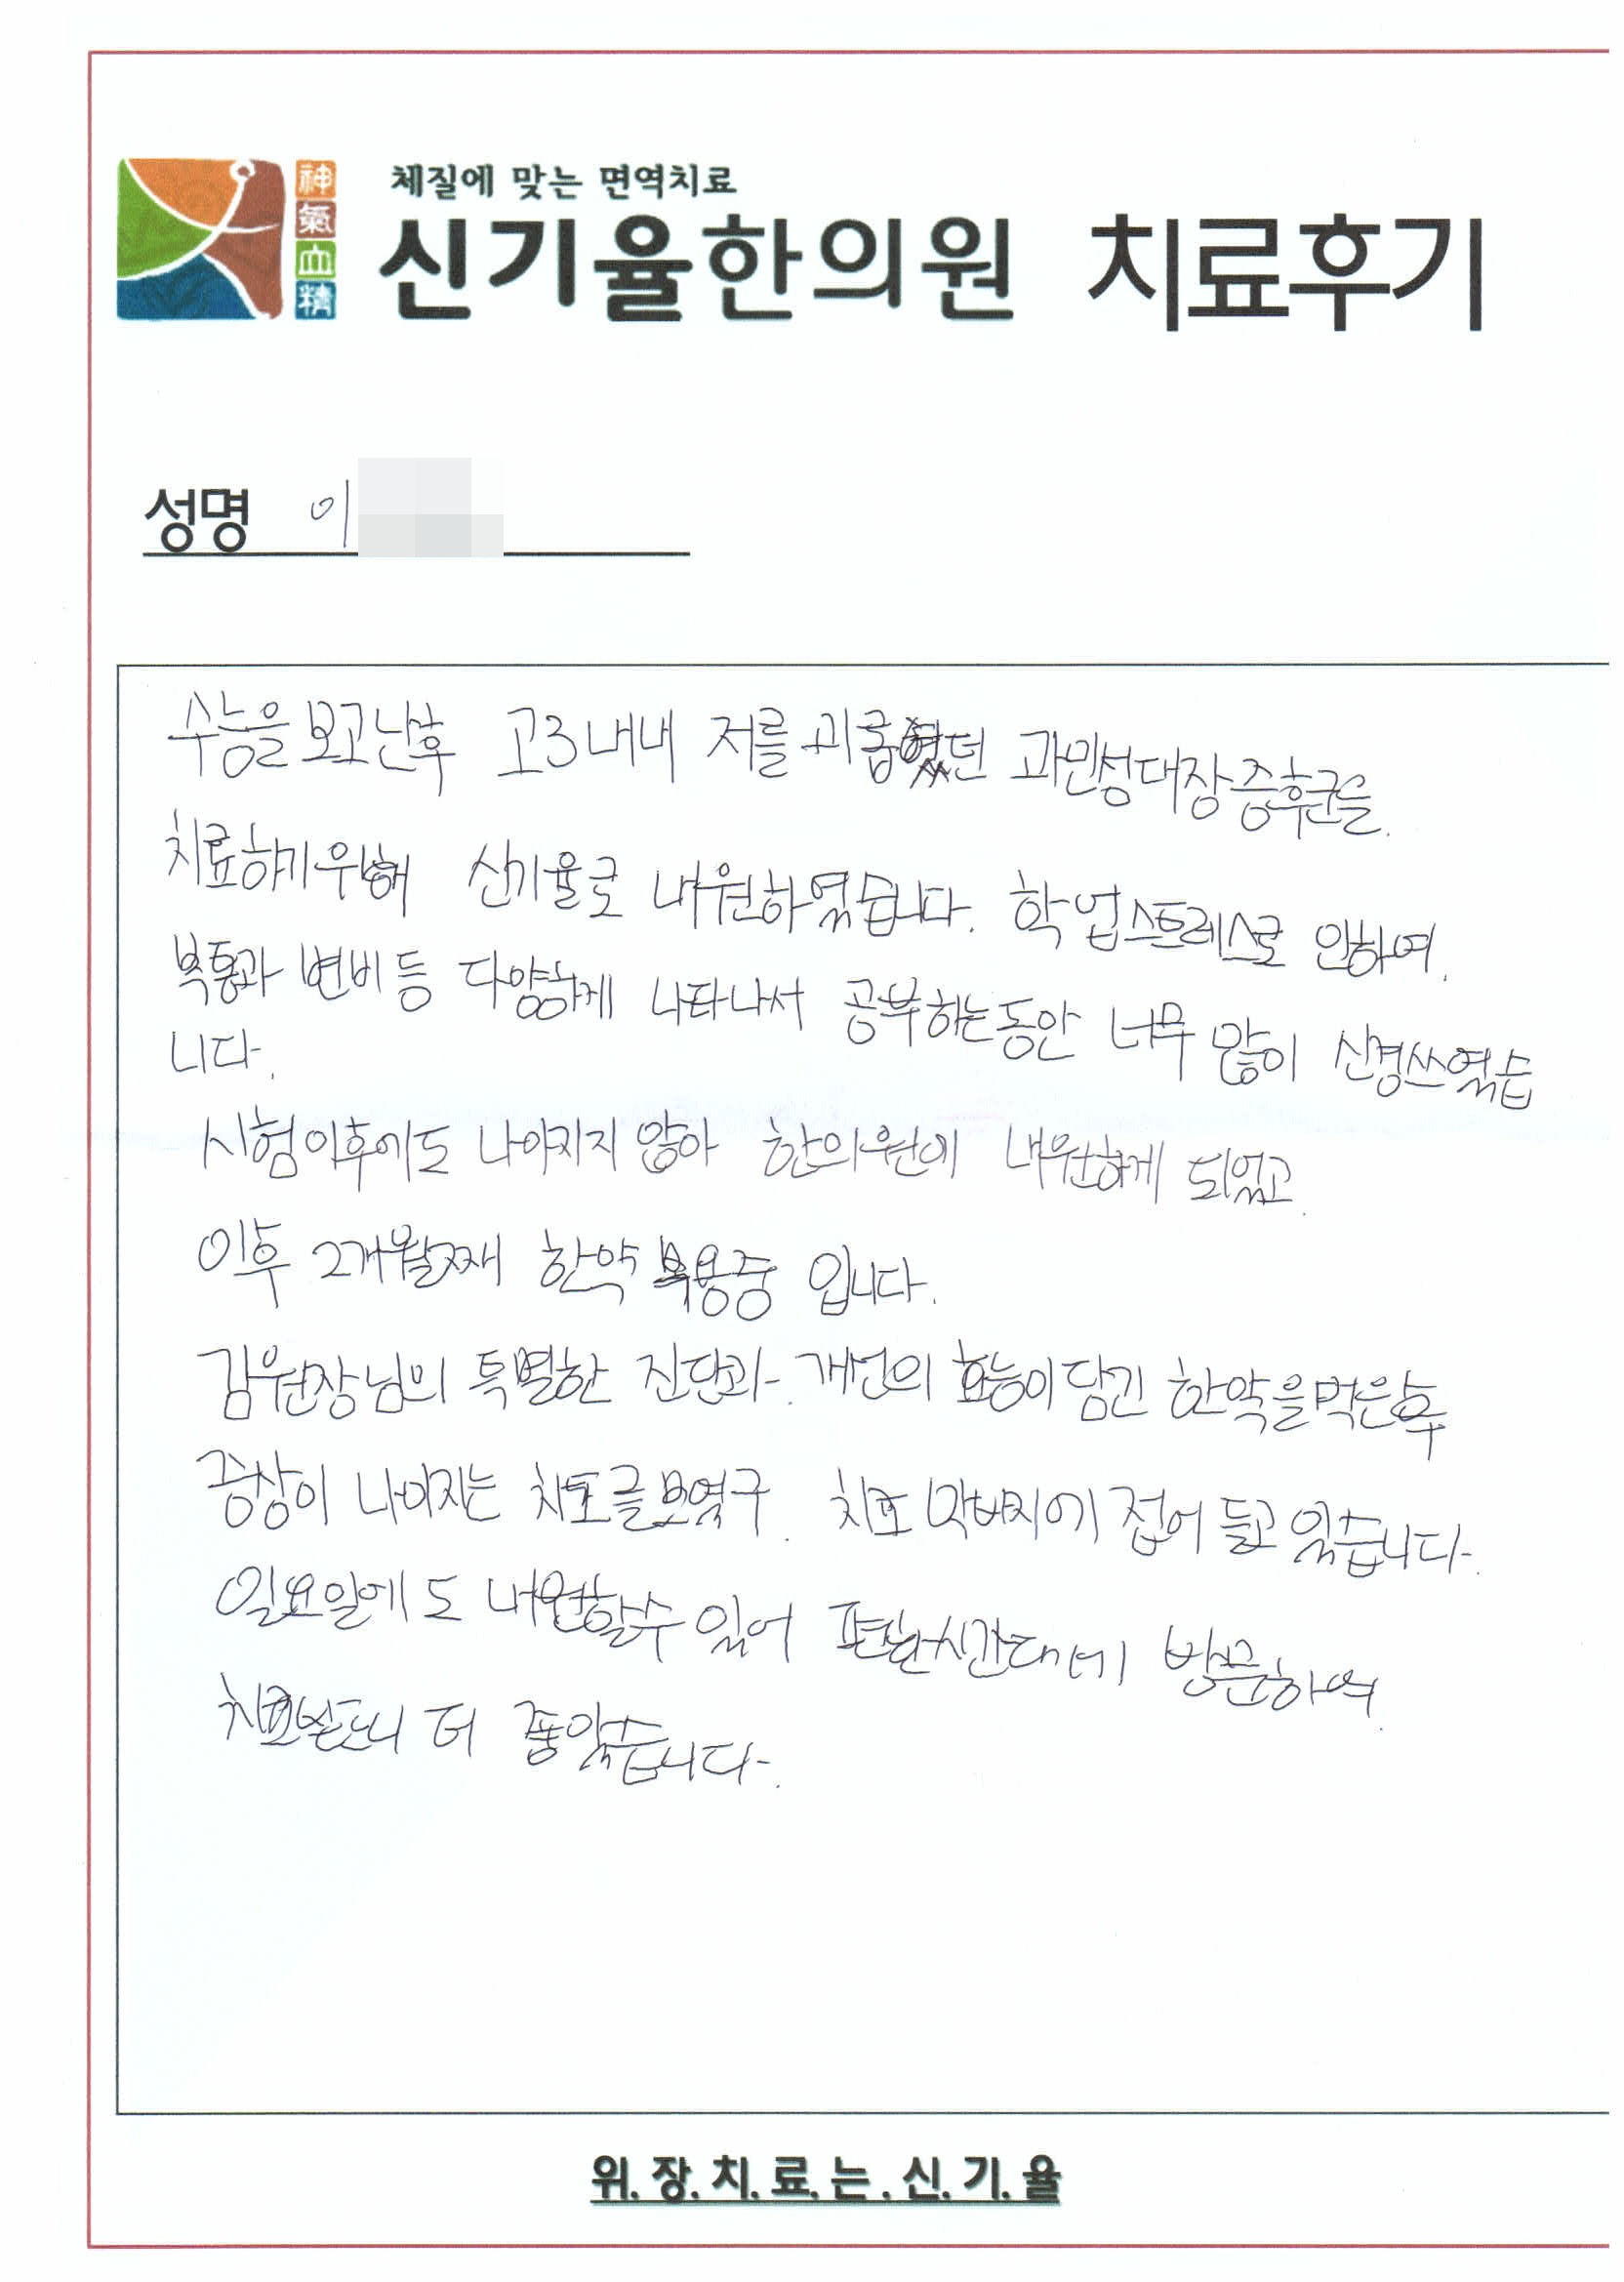 神
氣
血
精
체질에 맞는 면역치료
신기율한의원 치료후기
성명 이
수능을 보고난후 고3내내 저를 괴롭혔던 과민성대장증후군을
치료하기위해 신기율로 내원하였습니다. 학업스트레스로 인하여
복통과 변비등 다양하게 나타나서 공부하는동안 너무 많이 신경쓰였습
니다.
시험이후에도 나아지지 않아 한의원에 내원하게 되었고
이후 2개월째 한약 복용중 입니다.
김원장님의 특별한 진단과 개선의 효능이담긴 한약을먹은후
증상이 나아지는 치료 막바지에 접어 들고 있습니다.
일요일에도 내원할수 있어 편한시간대에 방문하여
치료받으니 더 좋았습니다.
위.장.치.료.는.신.기.율